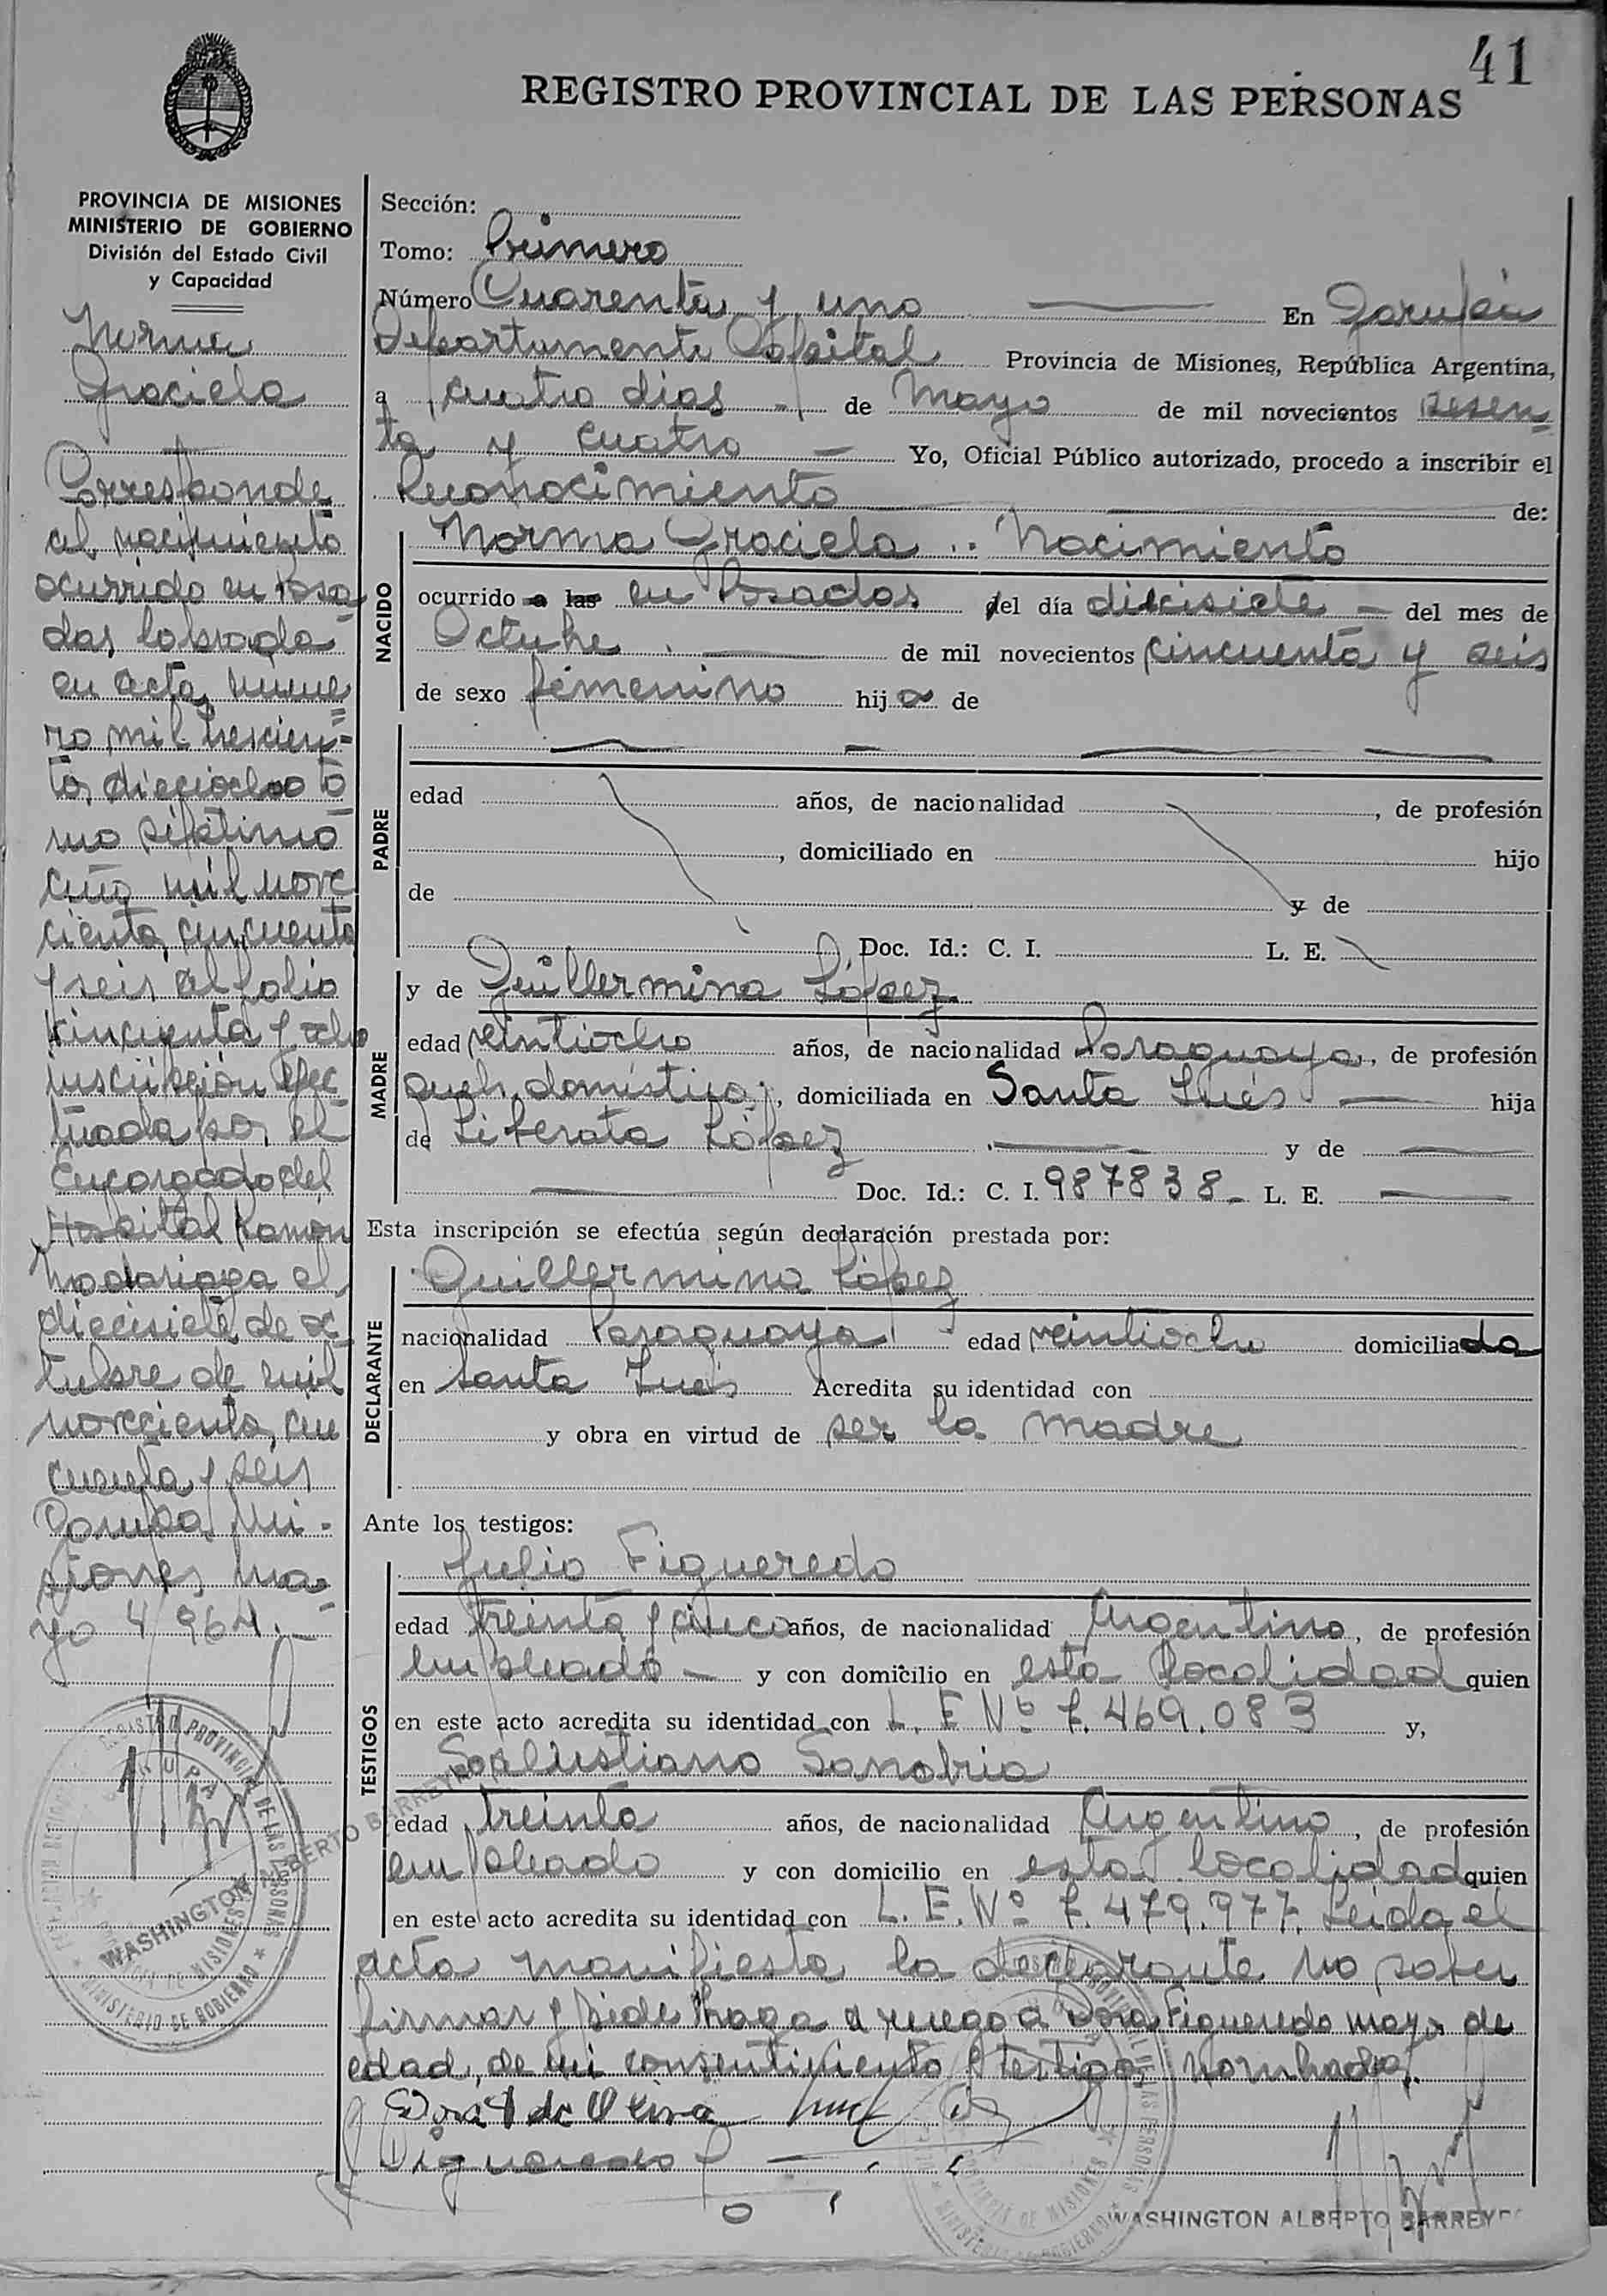 41
REGISTRO PROVINCIAL DE LAS PERSONAS
PROVINCIA DE MISIONES
MINISTERIO DE GOBIERNO
División del Estado Civil
y Capacidad
Norma
Graciela
Corresponde
al nacimiento
ocurrido en Posa
das labrada
en acta nume
ro mil trescien=
tos dieciocho to
mo séptimo
año mil nove
cientos cincuenta
y seis al folio
cincuenta y ocho
inscripción efec
tuada por el
Encargado del
Hospital Ramón
Madariaga el
diecisiete de oc
tubre de mil
novecientos cin
cuenta y seis
Garupá Mi-
siones, ma=
yo 4/964.-
Sección:
Tomo: Primero
Número Cuarenta y uno En Garupá
Departamento Capital Provincia de Misiones, República Argentina,
a cuatro dias de Mayo de mil novecientos sesen=
ta y cuatro — Yo, Oficial Público autorizado, procedo a inscribir el
Reconocimiento de:
NACIDO
Norma Graciela .. Nacimiento
ocurrido a las en Posadas del día diecisiete — del mes de
Octubre . — de mil novecientos cincuenta y seis
de sexo femenino hij a de
PADRE
edad años, de nacionalidad , de profesión
, domiciliado en hijo
de y de
Doc. Id.: C. I. L. E.
MADRE
y de Guillermina López
edad veintiocho años, de nacionalidad Paraguaya, de profesión
queh. doméstico, domiciliada en Santa Inés — hija
de Liberata López . — y de —
— Doc. Id.: C. I. 987838 - L. E. —
Esta inscripción se efectúa según declaración prestada por:
DECLARANTE
Guillermina López
nacionalidad Paraguaya edad veintiocho domiciliada
en Santa Inés Acredita su identidad con
y obra en virtud de ser la madre
Ante los testigos:
TESTIGOS
Julio Figueredo
edad treinta y cinco años, de nacionalidad Argentino, de profesión
empleado — y con domicilio en esta localidad quien
en este acto acredita su identidad con L. E Nº 7.469.083 y,
Salustiano Sanabria
edad treinta años, de nacionalidad Argentino, de profesión
empleado y con domicilio en esta localidad quien
en este acto acredita su identidad con L. E. Nº 7.479.977. Leida el
acta manifiesta la declarante no saber
firmar y pide haga a ruego a Dora Figueredo mayor de
edad, de mi consentimiento y testigos nombrados.
Figueredo
REGISTRO PROVINCIAL DE LAS PERSONAS
GARUPA
MINISTERIO DE GOBIERNO
WASHINGTON ALBERTO BARREYRO
WASHINGTON ALBERTO BARREYR